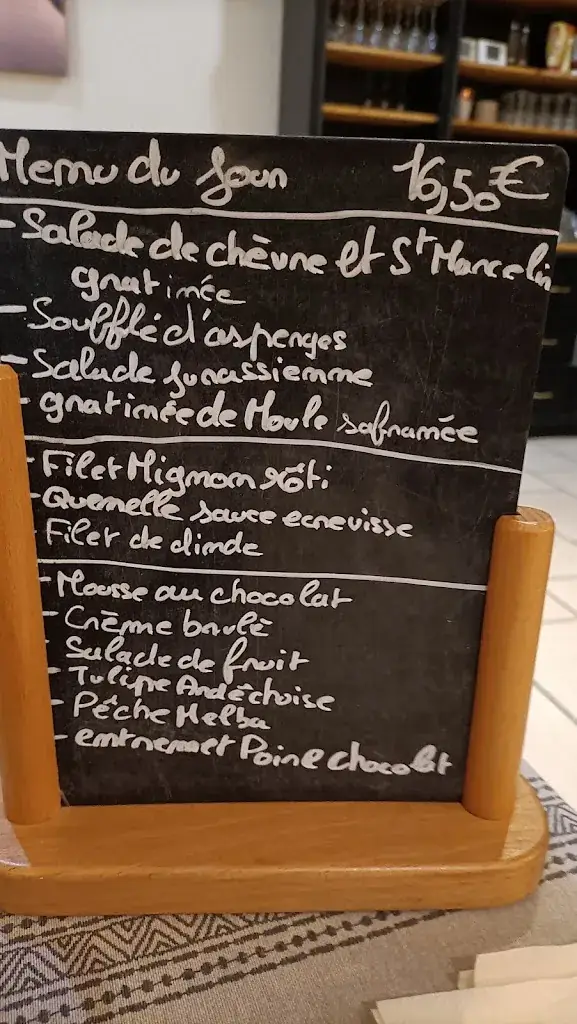 Menu du Jour 16,50€
- Salade de chèvre et St Marcelin
gratinée
- Soufflé d'asperges
- Salade jurassienne
- gratinée de Moule safranée
- Filet Mignon rôti
- Quenelle sauce ecrevisse
- Filet de dinde
- Mousse au chocolat
- Crème brulè
- Salade de fruit
- Tulipe Ardèchoise
- Pêche Melba
- entremet Poire chocolat